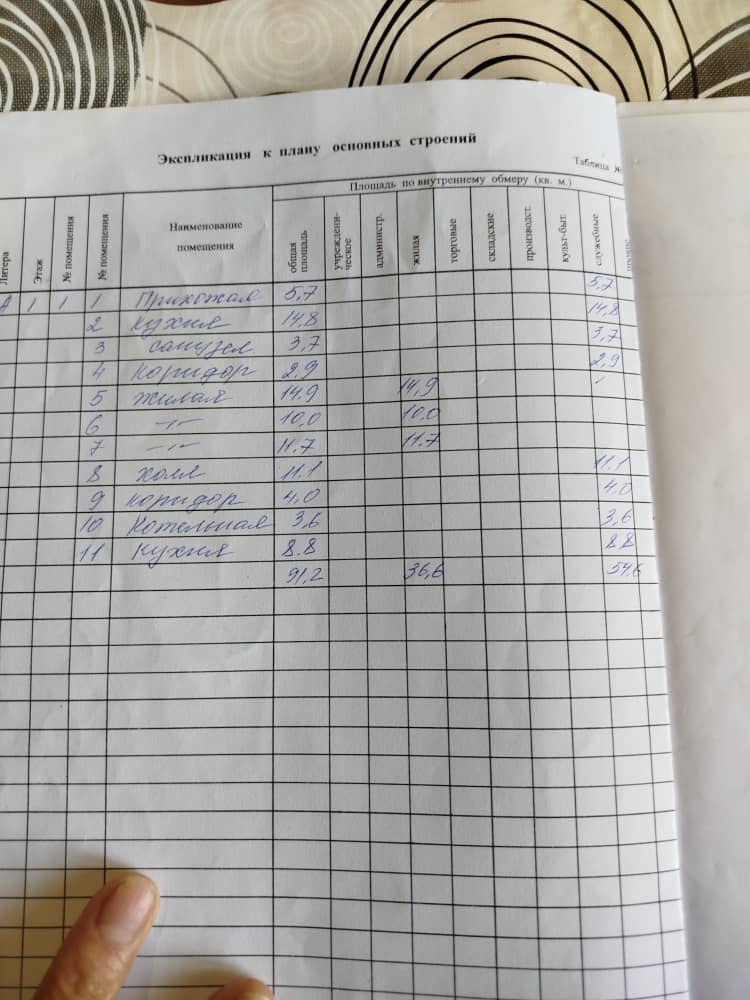 Экспликация к плану основных строений
Таблица №
Площадь по внутреннему обмеру (кв. м.)
Литера Этаж № помещения № помещения Наименование помещения общая площадь учреждени-ческое администр. жилая торговые складские производст. культ-быт. служебные
А 1 1 1 Прихожая 5,7 5,7
2 Кухня 14,8 14,8
3 санузел 3,7 3,7
4 коридор 2,9 2,9
5 жилая 14,9 14,9
6 -"- 10,0 10,0
7 -"- 11.7 11.7
8 холл 11.1 11.1
9 коридор 4,0 4,0
10 Котельная 3,6 3,6
11 Кухня 8.8 8.8
91,2 36,6 54,6